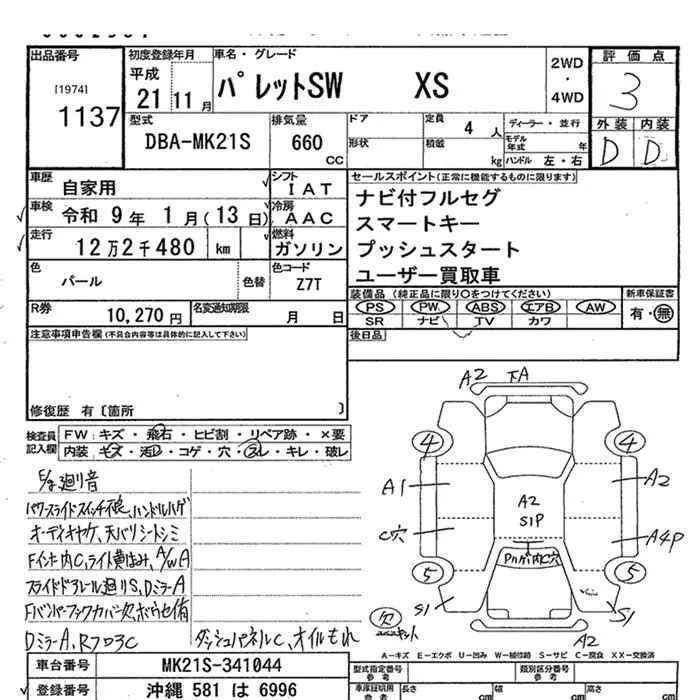 出品番号 初度登録年月 車名・グレード 2WD・4WD 評価点
[1974] 平成
1137 21年11月 パレットSW XS 3
型式 排気量 ドア 定員 ディーラー・並行 外装 内装
DBA-MK21S 660CC 4人 モデル年式 年 D D
形状 積載 kg ハンドル 左・右
車歴 自家用 シフト IAT セールスポイント(正常に機能するものに限ります)
車検 令和 9年 1月(13日) 冷房 AAC ナビ付フルセグ
スマートキー
走行 12万2千480 km 燃料 ガソリン プッシュスタート
ユーザー買取車
色 パール 色替 色コード Z7T 装備品(純正品に限り○をつけてください) 新車保証書
PS PW ABS エアB AW 有・無
R券 10,270円 名変通知期限 月 日 SR ナビ TV カワ
注意事項申告欄(不具合内容等は具体的に記入して下さい) 後日品
修復歴 有〔箇所 〕
検査員記入欄 FW:キズ・飛石・ヒビ割・リペア跡・×要
内装:キズ・汚レ・コゲ・穴・スレ・キレ・破レ
廻り音
パワースライドスイッチ ハンドルハゲ
オーディオヤケ、天バリシートシミ
Fインナー内C、ライト黄ばみ、A/W A
スライドドアレール廻りS、DミラーA
Fバンパーフックカバー欠
DミラーA、RフロアC ダッシュパネルC、オイルもれ
A2 下A
4 4
A1 A2
A2
S1P
C穴 A4P
内C穴
5 5
S1 S1
欠
A2
A-キズ E-エクボ U-凹み W-補修跡 S-サビ C-腐食 XX-交換済
車台番号 MK21S-341044 型式指定番号 類別区分番号
参考 参考
登録番号 沖縄 581 は 6996 車庫証明用 参考 長さ cm 幅 cm 高さ cm